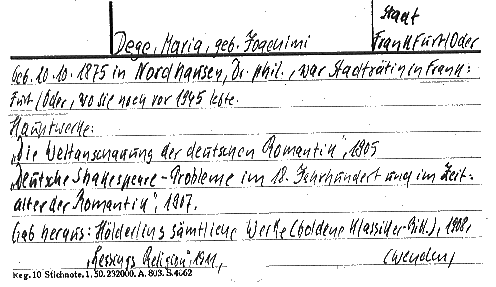 Stadt
Dege, Maria, geb. Joachimi Frankfurt/Oder
Geb. 10.10.1875 in Nordhausen, Dr. phil., war Stadträtin in Frank=
furt/Oder, wo sie noch vor 1945 lebte.
Hauptwerke:
„Die Weltanschauung der deutschen Romantik“, 1905
„Deutsche Shakespeare-Probleme im 18. Jahrhundert und im Zeit-
alter der Romantik“, 1907.
Gab heraus: Hölderlins sämtliche Werke (Goldene Klassiker-Bibl.), 1908,
„Lessings Religion“, 1911, (wenden)
Keg. 10 Stichnote. 1, 50. 232000. A. 803. S. 4662